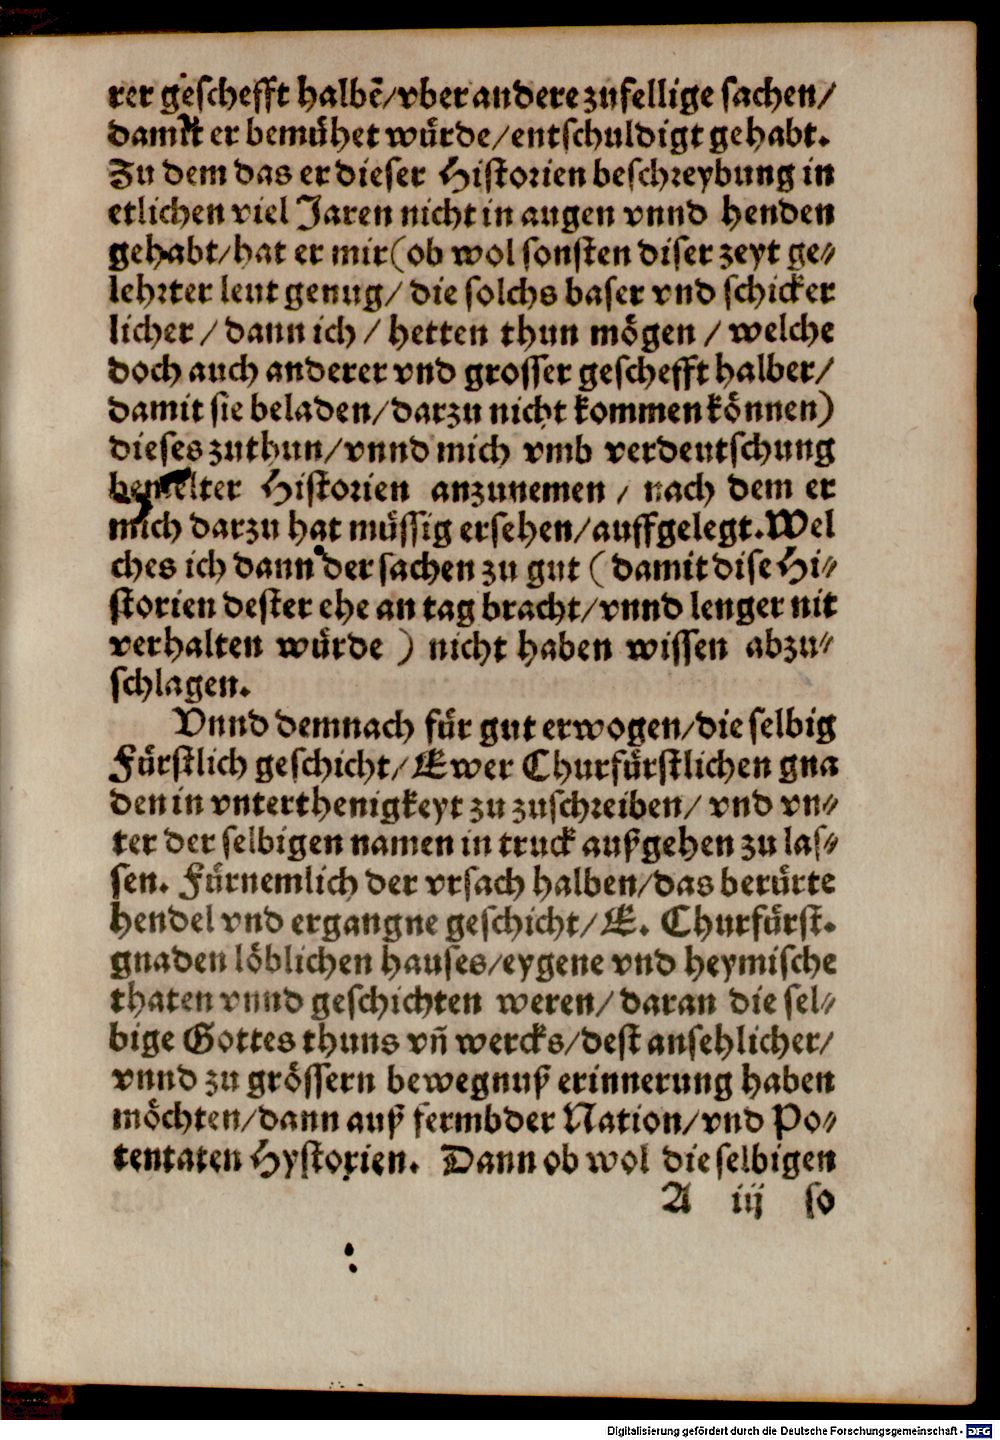 rer geschefft halbẽ/vber andere zufellige sachen/
damit er bemühet würde/entschuldigt gehabt.
Zu dem das er dieser Historien beschreybung in
etlichen viel Jaren nicht in augen vnnd henden
gehabt/hat er mir(ob wol sonsten diser zeyt ge-
lehrter leut genug/die solchs baser vnd schicker
licher/dann ich/hetten thun mögen/welche
doch auch anderer vnd grosser geschefft halber/
damit sie beladen/darzu nicht kommen können)
dieses zuthun/vnnd mich vmb verdeutschung
bemelter Historien anzunemen/nach dem er
mich darzu hat müssig ersehen/auffgelegt.Wel
ches ich dann der sachen zu gut (damit dise Hi-
storien dester ehe an tag bracht/vnnd lenger nit
verhalten würde) nicht haben wissen abzu-
schlagen.
Vnnd demnach für gut erwogen/die selbig
Fürstlich geschicht/Ewer Churfürstlichen gna
den in vnterthenigkeyt zu zuschreiben/vnd vn-
ter der selbigen namen in truck außgehen zu las-
sen. Fürnemlich der vrsach halben/das berürte
hendel vnd ergangne geschicht/E. Churfürst.
gnaden löblichen hauses/eygene vnd heymische
thaten vnnd geschichten weren/daran die sel-
bige Gottes thuns vñ wercks/dest ansehlicher/
vnnd zu grössern bewegnuß erinnerung haben
möchten/dann auß fermbder Nation/vnd Po-
tentaten Hystorien. Dann ob wol die selbigen
A iij so
Digitalisierung gefördert durch die Deutsche Forschungsgemeinschaft - DFG